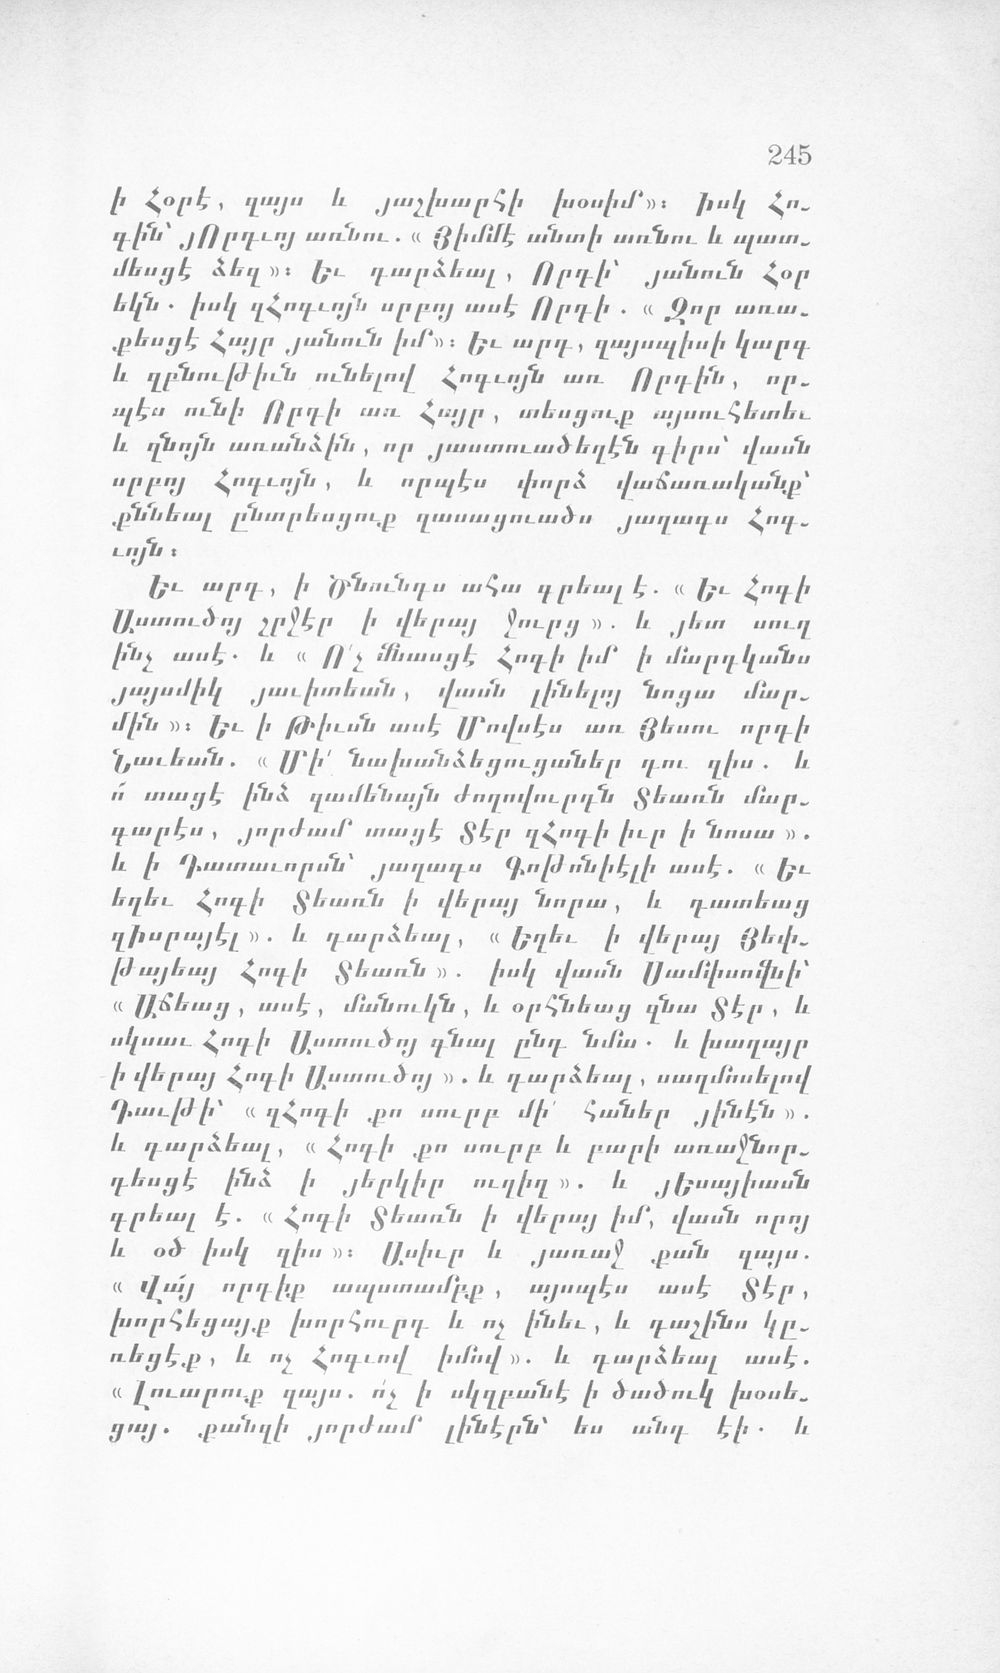 245
ի Հօրէ, զայս և յաշխարհի խօսիմ»։ Իսկ Հո-
գին՝ յՈրդւոյ առնու. «Յիմմէ անտի առնու և պատ-
մեսցէ ձեզ»։ Եւ դարձեալ, Որդի՝ յանուն Հօր
եկն. իսկ զՀոգւոյն սրբոյ ասէ Որդի. «Զոր առա-
քեսցէ Հայր յանուն իմ»։ Եւ արդ, զայսպիսի կարգ
և զբնութիւն ունելով Հոգւոյն առ Որդին, որ-
պէս ունի Որդի առ Հայր, տեսցուք այսուհետեւ
և զնոյն առանձին, որ յաստուածեղէն գիրս՝ վասն
սրբոյ Հոգւոյն, և որպէս փորձ վաճառականք՝
քննեալ ընտրեսցուք զասացուածս յաղագս Հոգ-
ւոյն։
Եւ արդ, ի Ծնունդս ահա գրեալ է. «Եւ Հոգի
Աստուծոյ շրջէր ի վերայ ջուրց». և յետ սուղ
ինչ ասէ. և «Ո՛չ մնասցէ Հոգի իմ ի մարդկանս
յայսմիկ յաւիտեան, վասն լինելոյ նոցա մար-
մին»։ Եւ ի Թիւսն ասէ Մովսէս առ Յեսու որդի
Նաւեան. «Մի՛ նախանձեցուցաներ դու զիս. և
ո՞ տացէ ինձ զամենայն ժողովուրդն Տեառն մար-
գարէս, յորժամ տացէ Տէր զՀոգի իւր ի նոսա».
և ի Դատաւորսն՝ յաղագս Գոթոնիէլի ասէ. «Եւ
եղեւ Հոգի Տեառն ի վերայ նորա, և դատեաց
զԻսրայէլ». և դարձեալ, «Եղեւ ի վերայ Յեփ-
թայեայ Հոգի Տեառն». իսկ վասն Սամփսոնի՝
«Աճեաց, ասէ, մանուկն, և օրհնեաց զնա Տէր, և
սկսաւ Հոգի Աստուծոյ գնալ ընդ նմա. և խաղայր
ի վերայ Հոգի Աստուծոյ». և դարձեալ, սաղմոսելով
Դաւթի՝ «զՀոգի քո սուրբ մի՛ հաներ յինէն».
և դարձեալ, «Հոգի քո սուրբ և բարի առաջնոր-
դեսցէ ինձ ի յերկիր ուղիղ». և յԵսայիասն
գրեալ է. «Հոգի Տեառն ի վերայ իմ, վասն որոյ
և օծ իսկ զիս»։ Ասիւր և յառաջ քան զայս.
«Վա՜յ որդիք ապստամբք, այսպէս ասէ Տէր,
խորհեցայք խորհուրդ և ոչ ինեւ, և դաշինս կը-
ռեցէք, և ոչ Հոգւով իմով». և դարձեալ ասէ.
«Լուարուք զայս. ո՛չ ի սկզբանէ ի ծածուկ խօսե-
ցայ. քանզի յորժամ լինէրն՝ ես անդ էի. և